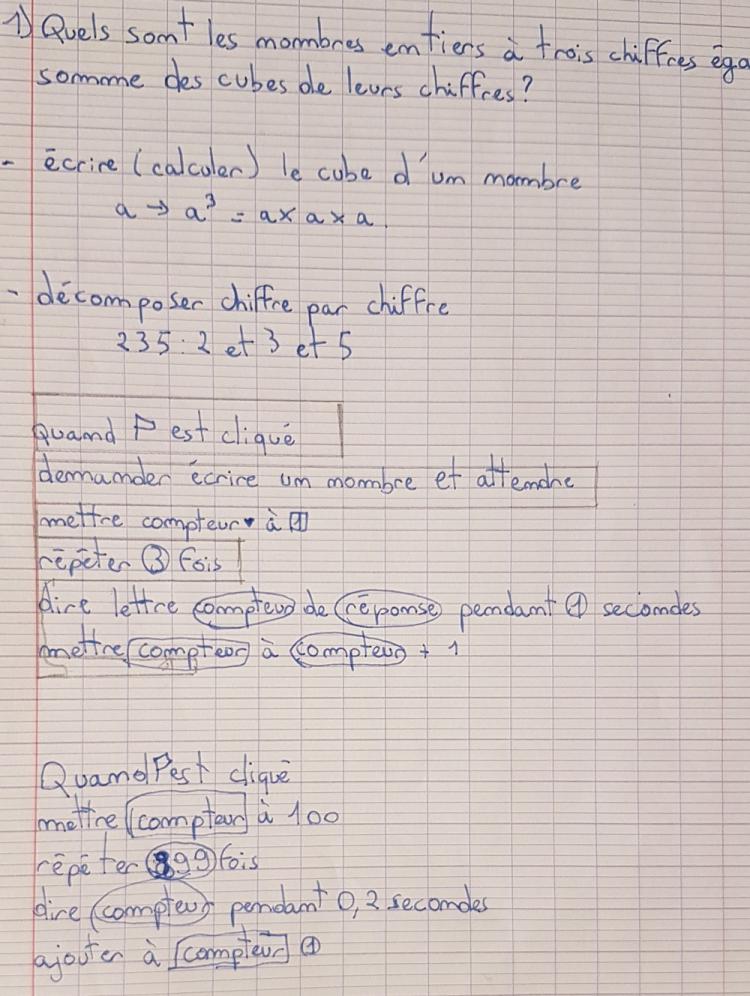 1) Quels sont les nombres entiers à trois chiffres éga
somme des cubes de leurs chiffres?
- écrire (calculer) le cube d'un nombre
a → a³ = a x a x a.
- décomposer chiffre par chiffre
235 : 2 et 3 et 5
Quand P est cliqué
demander écrire un nombre et attendre
mettre compteur à 1
répéter 3 fois
dire lettre compteur de réponse pendant 1 secondes
mettre compteur à compteur + 1
Quand P est cliqué
mettre compteur à 100
répéter 899 fois
dire compteur pendant 0,2 secondes
ajouter à compteur 1